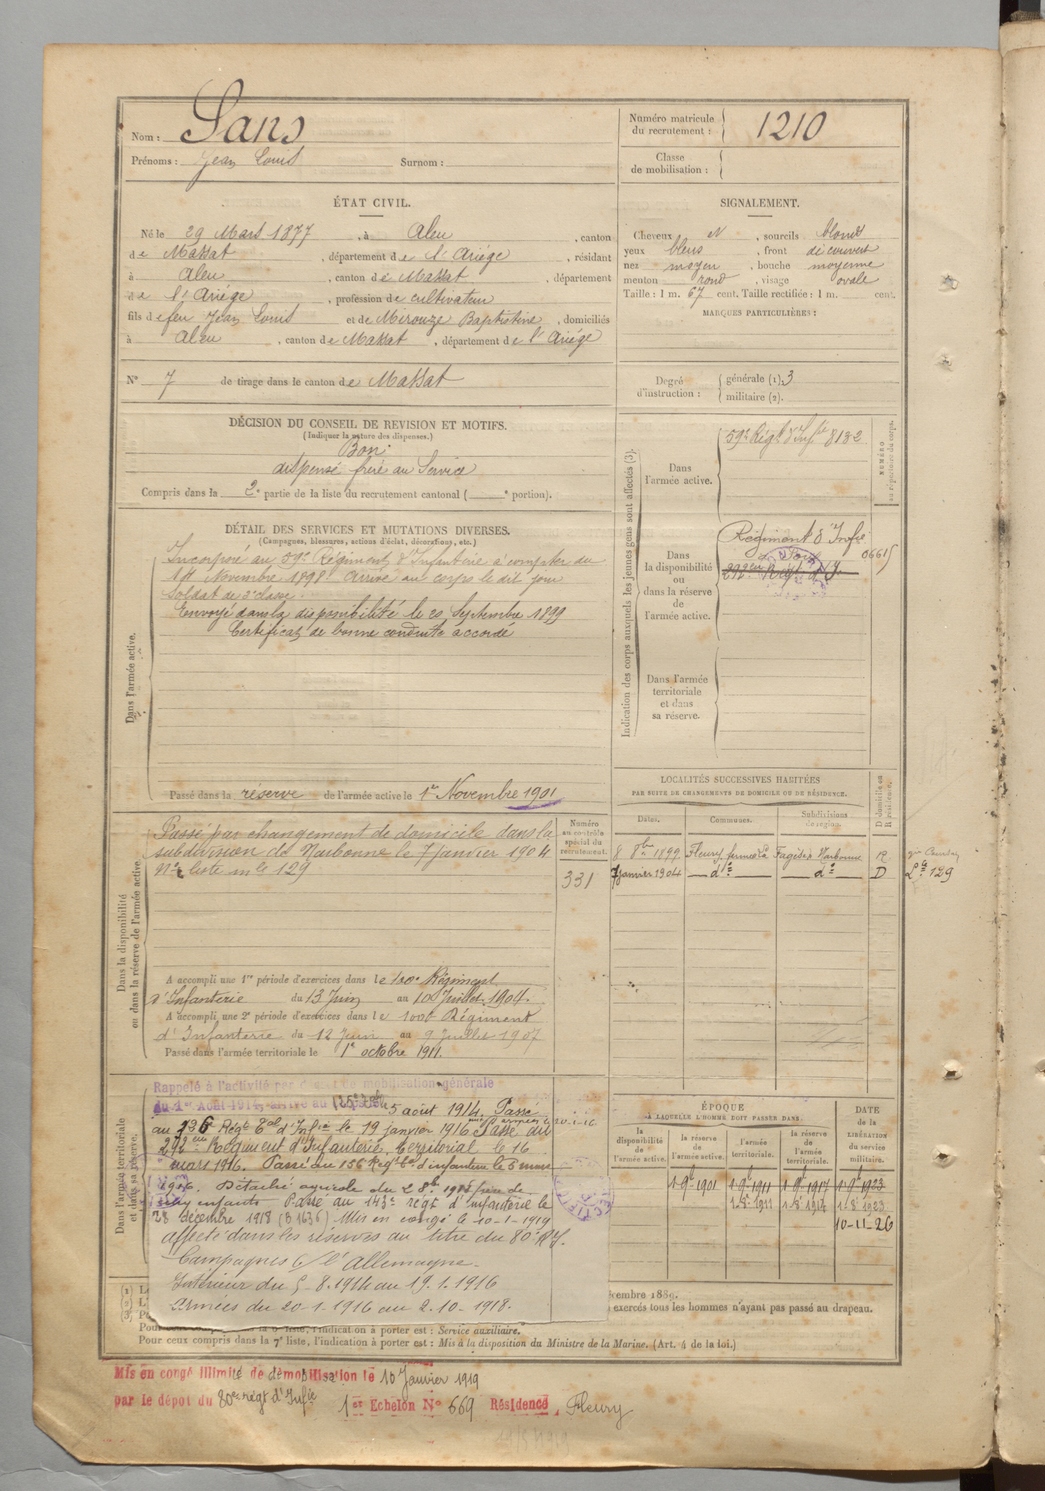 Nom : Sans
Prénoms : Jean Louis Surnom :
Numéro matricule du recrutement : 1210
Classe de mobilisation :
ÉTAT CIVIL.
Né le 29 Mars 1877, à Aleu, canton
de Massat, département de l'Ariége, résidant
à Aleu, canton de Massat, département
de l'Ariége, profession de cultivateur
fils de feu Jean Louis et de Mirouze Baptistine, domiciliés
à Aleu, canton de Massat, département de l'Ariége
N° 7 de tirage dans le canton de Massat
SIGNALEMENT.
Cheveux N, sourcils blonds
yeux bleus, front découvert
nez moyen, bouche moyenne
menton rond, visage ovale
Taille : 1 m. 67 cent. Taille rectifiée : 1 m. cent.
MARQUES PARTICULIÈRES :
Degré d'instruction : générale (1). 3
militaire (2).
DÉCISION DU CONSEIL DE REVISION ET MOTIFS.
(Indiquer la nature des dispenses.)
Bon
dispensé frère au Service
Compris dans la 2e partie de la liste du recrutement cantonal ( e portion).
DÉTAIL DES SERVICES ET MUTATIONS DIVERSES.
(Campagnes, blessures, actions d'éclat, décorations, etc.)
Dans l'armée active.
Incorporé au 59e Régiment d'Infanterie à compter du
14 Novembre 1898. Arrivé au corps le dit jour
Soldat de 2e classe.
Envoyé dans la disponibilité le 20 Septembre 1899
Certificat de bonne conduite accordé
Passé dans la réserve de l'armée active le 1er Novembre 1901
Indication des corps auxquels les jeunes gens sont affectés (3).
NUMÉRO au répertoire du corps.
Dans l'armée active.
59e Régt d'Infie 8182
Dans la disponibilité ou dans la réserve de l'armée active.
Régiment d'Infie
06615
Dans l'armée territoriale et dans sa réserve.
LOCALITÉS SUCCESSIVES HABITÉES
PAR SUITE DE CHANGEMENTS DE DOMICILE OU DE RÉSIDENCE.
Dates. Communes. Subdivisions de région. D domicile ou R résidence.
8 8bre 1899 Fleury ferme la Fagèdes Narbonne R
7 janvier 1904 do do D
129
Dans la disponibilité ou dans la réserve de l'armée active.
Numéro au contrôle spécial du recrutement.
331
Passé par changement de domicile dans la
subdivision de Narbonne le 7 janvier 1904
No liste mle 129
A accompli une 1re période d'exercices dans le 100e Régiment
d'Infanterie du 13 Juin au 10 Juillet 1904.
A accompli une 2e période d'exercices dans le 100e Régiment
d'Infanterie du 12 Juin au 9 Juillet 1907
Passé dans l'armée territoriale le 1er octobre 1911.
Dans l'armée territoriale et dans sa réserve.
Rappelé à l'activité par décret de mobilisation générale
du 1er Août 1914, arrivé au 5 août 1914. Passé
au 136 Régt 8al d'Infie le 19 janvier 1916. Passé au
292em Régiment d'Infanterie territorial le 16
mars 1916. Passé au 156 Régt d'infanterie le 5 mars
Détaché agricole du 2 8bre
enfants Passé au 143e Régt d'infanterie le
28 décembre 1918 (D 1636) Mis en congé le 10-1-1919
affecté dans les réserves au titre du 80e R.I.
Campagnes c/ l'Allemagne.
Intérieur du 5.8.1914 au 19.1.1916
Armées du 20.1.1916 au 2.10.1918.
ÉPOQUE
À LAQUELLE L'HOMME DOIT PASSER DANS
la disponibilité de l'armée active.
la réserve de l'armée active.
l'armée territoriale.
la réserve de l'armée territoriale.
DATE de la LIBÉRATION du service militaire.
1-9bre 1901 1-9bre 1911 1-9bre 1917 1-9bre 1923
1-8e 1911 1-8e 1917 1-8e 1923
10-11-26
exercés tous les hommes n'ayant pas passé au drapeau.
l'indication à porter est : Service auxiliaire.
Pour ceux compris dans la 7e liste, l'indication à porter est : Mis à la disposition du Ministre de la Marine. (Art. 4 de la loi.)
Mis en congé illimité de démobilisation le 10 Janvier 1919
par le dépot du 80e régt d'Infie 1er Echelon N° 669 Résidence Fleury